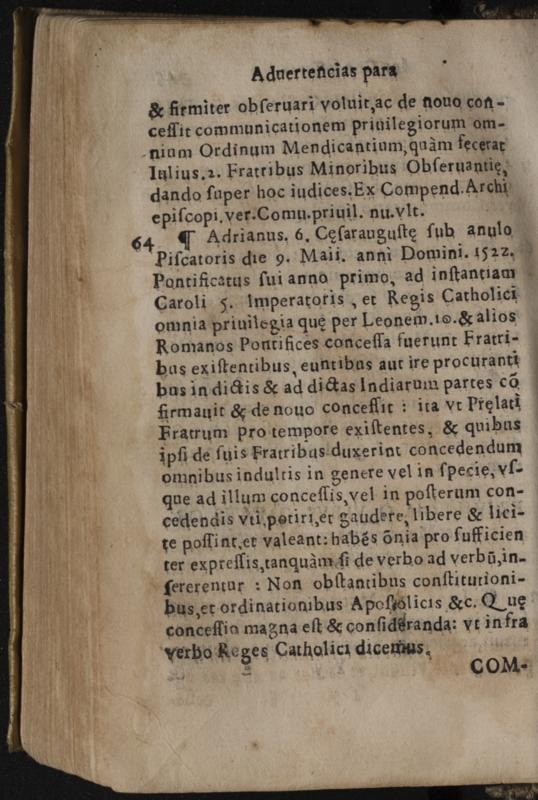 Aduertencias para
& firmiter obſeruari voluit,ac de nouo con-
ceſſit communicationem priuilegiorum om-
nium Ordinum Mendicantium,quàm fecerat
Iulius.2. Fratribus Minoribus Obſeruantię,
dando ſuper hoc iudices.Ex Compend.Archi
epiſcopi.ver.Comu.priuil. nu.vlt.
64 ¶ Adrianus. 6. Cęſarauguſtę ſub anulo
Piſcatoris die 9. Maii. anni Domini. 1522.
Pontificatus ſui anno primo, ad inſtantiam
Caroli 5. Imperatoris, et Regis Catholici
omnia priuilegia quę per Leonem.10.& alios
Romanos Pontifices conceſſa fuerunt Fratri-
bus exiſtentibus, euntibus aut ire procuranti
bus in dictis & ad dictas Indiarum partes cõ
firmauit & de nouo conceſſit : ita vt Pręlati
Fratrum pro tempore exiſtentes, & quibus
ipſi de ſuis Fratribus duxerint concedendum
omnibus indultis in genere vel in ſpecie, vſ-
que ad illum conceſſis, vel in poſterum con-
cedendis vti, potiri, et gaudere, libere & lici-
te poſſint, et valeant: habẽs õnia pro ſufficien
ter expreſſis, tanquàm ſi de verbo ad verbũ, in-
ſererentur : Non obſtantibus conſtitutioni-
bus, et ordinationibus Apoſtolicis &c. Quę
conceſſio magna eſt & conſideranda: vt infra
verbo Reges Catholici dicemus.
COM-